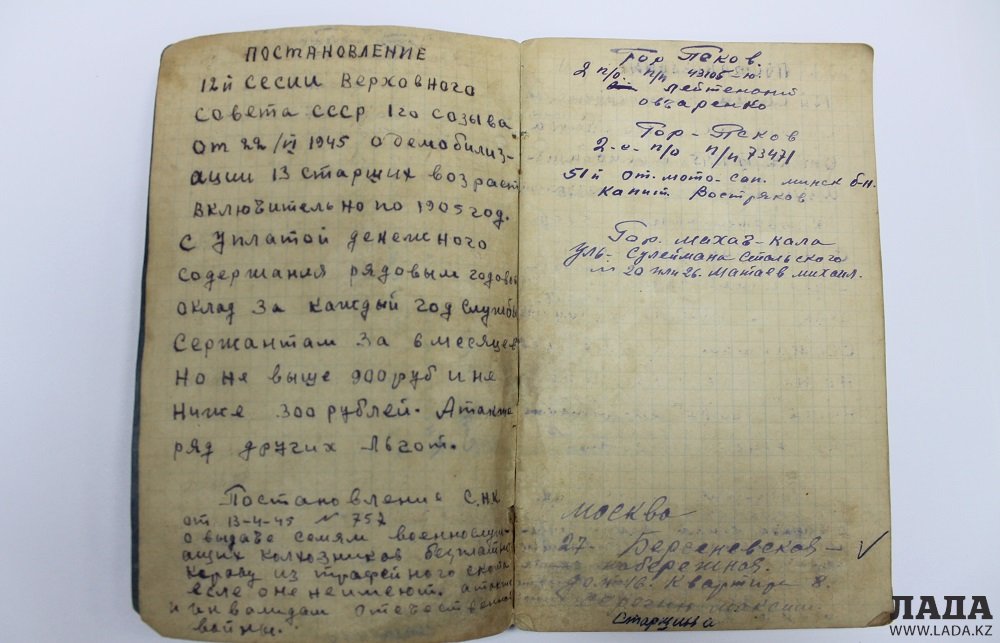 ПОСТАНОВЛЕНИЕ
12й сесии Верховного
совета СССР 1го созыва
от 22/VI 1945 о демобилиз-
ации 13 старших возраст
включительно по 1905 год.
с уплатой денежного
содержания рядовым годовой
оклад за каждый год службы
Сержантам за 6 месяцев
но не выше 900 руб и не
ниже 300 рублей. А также
ряд других льгот.
Постановление С.Н.К
от 13-4-45 № 757
о выдаче семям военнослуж-
ащих колхозников бесплатно
корову из трофейного скота
если оне неимеют. а также
и инвалидам отечествен
войны.
Гор Псков.
2 п/о п/п 43105-ю
Лейтенант
овчаренко
Гор-Псков
2-о-п/о п/п 73471
51й от. мото-сап. минск б-н.
Капит Востряков
Гор. махач-кала
уль- Сулеймана Стальского
№ 20 или 26. Матаев михаил.
Москва
27. Берсеневская-
набережная.
дом 16. Квартира 8.
Старшина
ЛАДА
WWW.LADA.KZ